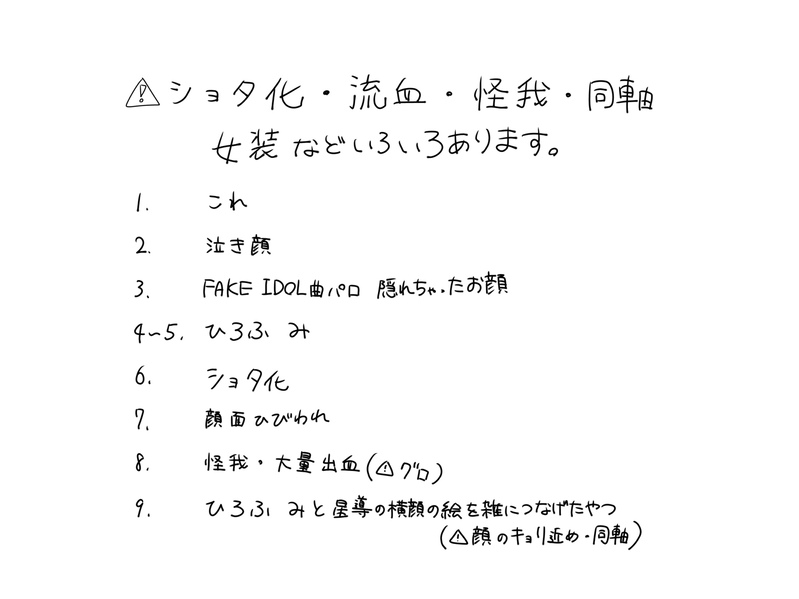 ⚠ショタ化・流血・怪我・同軸
女装などいろいろあります。
1. これ
2. 泣き顔
3. FAKE IDOL曲パロ 隠れちゃったお顔
4~5. ひろふみ
6. ショタ化
7. 顔面ひびわれ
8. 怪我・大量出血(⚠グロ)
9. ひろふみと星導の横顔の絵を雑につなげたやつ
(⚠顔のキョリ近め・同軸)